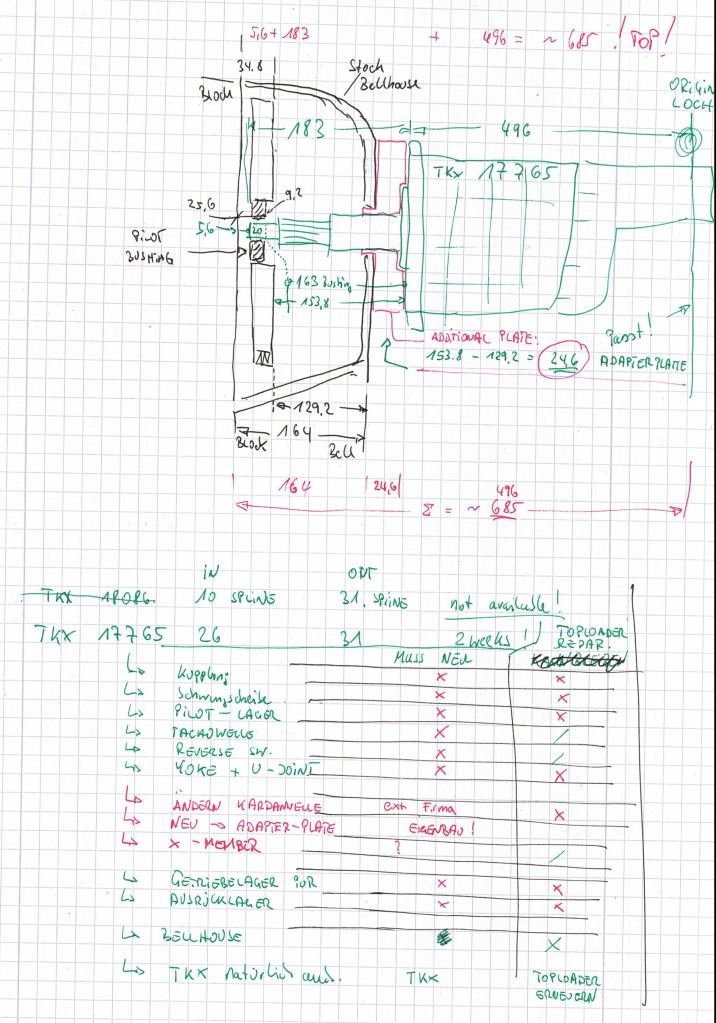 5,6 + 183 + 496 = ~ 685 ! TOP!
34.8
Block
Stock
Bellhouse
ORIGIN
LOCH
183
496
TKX 17765
25,6
9,2
5,6
20
PILOT
BUSHING
163 Bushing
153,8
ADDITIONAL PLATE:
153.8 - 129,2 = 24,6
passt!
ADAPTERPLATE
129,2
164
Block
Bell
164
24,6
496
Σ = ~ 685
IN
OUT
TKX 18086 10 SPLINE 31. SPLINE not available!
TKX 17765 26 31 2 weeks!
TOPLOADER
REPAR.
MUSS NEU
↳ Kupplung x x
↳ Schwungscheibe x x
↳ PILOT-LAGER x x
↳ TACHOWELLE x /
↳ REVERSE SW. x /
↳ YOKE + U-JOINT x x
↳ ÄNDERN KARDANWELLE ext Firma x
↳ NEU → ADAPTER-PLATE EIGENBAU!
↳ X-MEMBER ? /
↳ GETRIEBELAGER x x
↳ AUSRÜCKLAGER x x
↳ BELLHOUSE X
↳ TKX natürlich auch. TKX
TOPLOADER
ERNEUERN